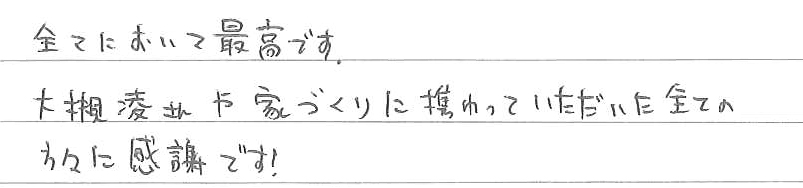 全てにおいて最高です.
大槻凌さんや家づくりに携わっていただいた全ての
方々に感謝です!